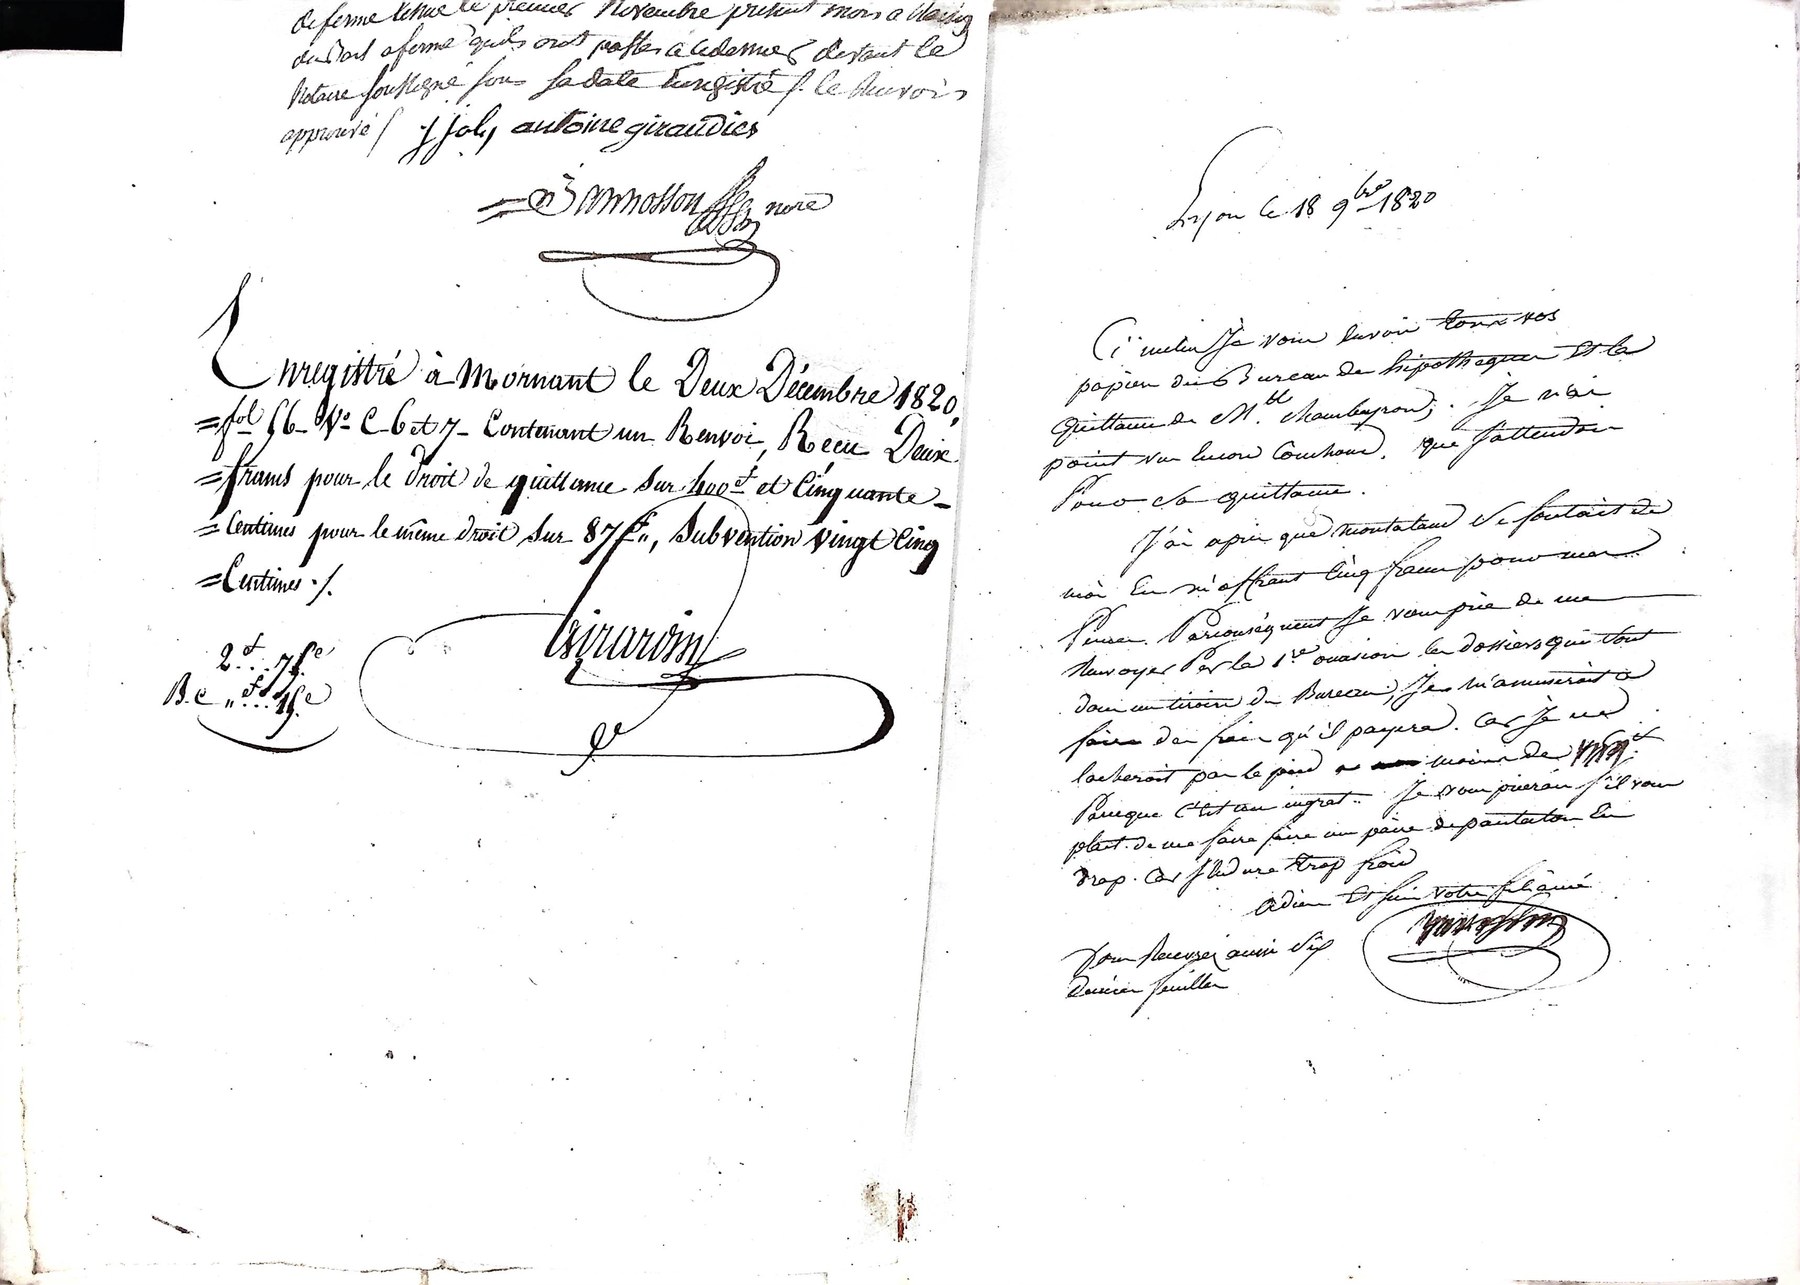 de ferme échue le premier Novembre présent mois a
du Bail a ferme qu'ils ont passés a ce dernier devant le
Notaire soussigné sous sa date Enregistré /. le Renvois
approuvé / J Joly antoine giraudier
= Bannosson nore
Enregistré à Mornant le Deux Décembre 1820,
= fol 56 Vo C 6 et 7 - Contenant un Renvoi, Reçu Deux
= francs pour le droit de quittance sur 400 f et Cinquante -
= Centimes pour le même droit sur 87 f ", Subvention vingt Cinq
= Centimes ./.
Girardin
2 f .. 75 c
B. c " f ... 15 c
Lyon le 18 9bre 1820
Ci inclus Je vous Envoie tous vos
papiers du Bureau des hipotheques Et la
Quittance de M. Chambeyron, . Je n'ai
point vu Encore Couchoud, que J'attendois
Pour sa quittance.
J'ai apris que montaland se foutait de
moi En m'offrant Cinq francs pour mes
Peines. Parconséquent Je vous prie de me
Renvoyer Par la 1re ocasion les dossiers qui sont
dans un tiroire du Bureau, Je m'amuserait a
faire des frais qu'il payera. Car Je ne
lacherait pas le pied a moins de
Parceque C'est un ingrat. Je vous prierai s'il vous
plait de me faire faire un paire de pantalon En
drap. Car il dure trop froid
adieu Et suis votre fils ainé
Vous Recevrez aussi dix
dernieres feuilles